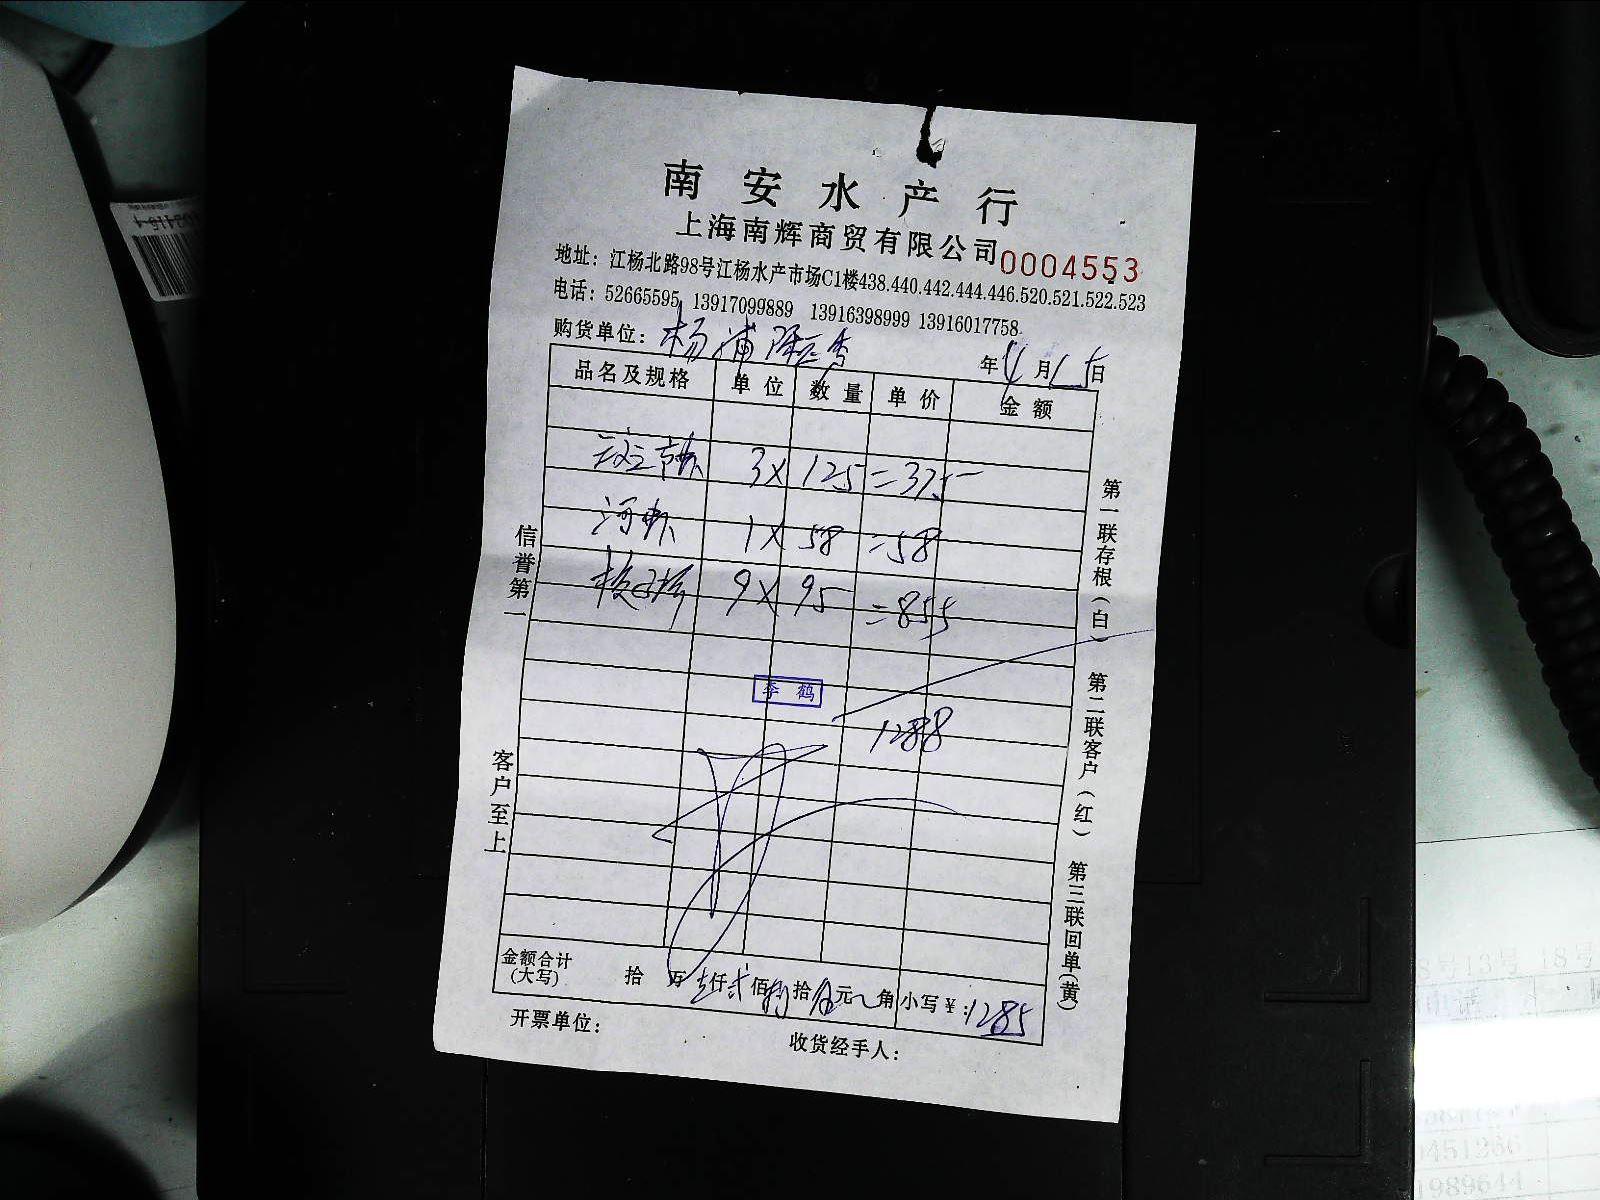 南安水产行
上海南辉商贸有限公司 0004553
地址：江杨北路98号江杨水产市场C1楼438.440.442.444.446.520.521.522.523
电话：52665595 13917099889 13916398999 13916017758
购货单位：杨浦 年4月15日
品名及规格 单位 数量 单价 金额
3×125=375
河 1×58=58
9×95=855
李鹤
1288
金额合计(大写) 拾 万 仟 佰 拾 元 角 小写￥：1285
开票单位： 收货经手人：
信誉第一 客户至上
第一联存根(白) 第二联客户(红) 第三联回单(黄)